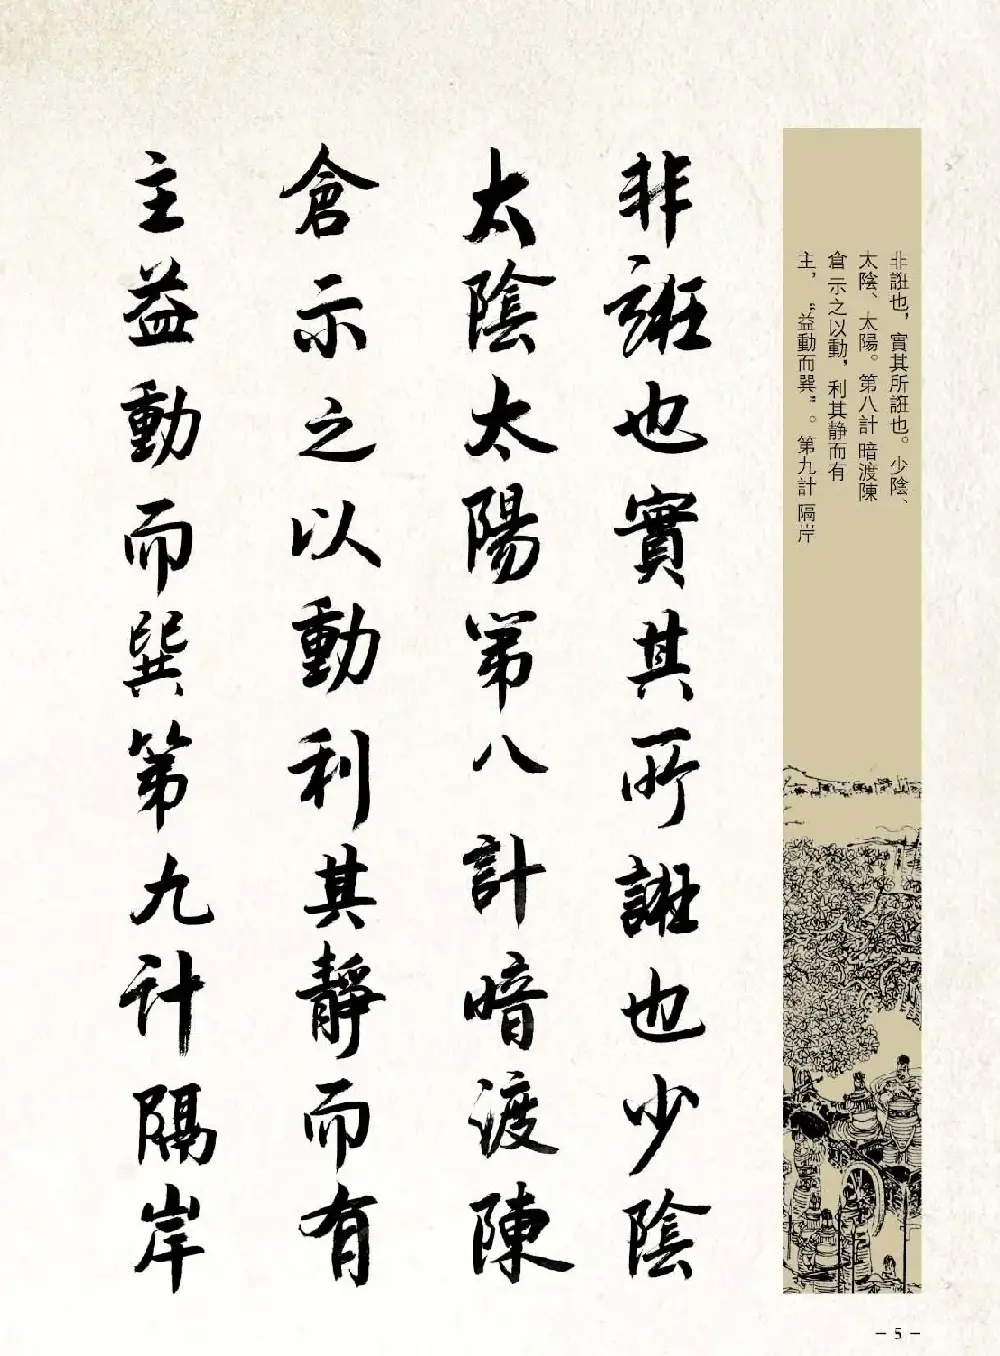 非誑也實其所誑也少陰
太陰太陽第八計暗渡陳
倉示之以動利其靜而有
主益動而巽第九計隔岸
非誑也，實其所誑也。少陰、
太陰、太陽。第八計 暗渡陳
倉 示之以動，利其静而有
主，“益動而巽”。第九計 隔岸
– 5 –